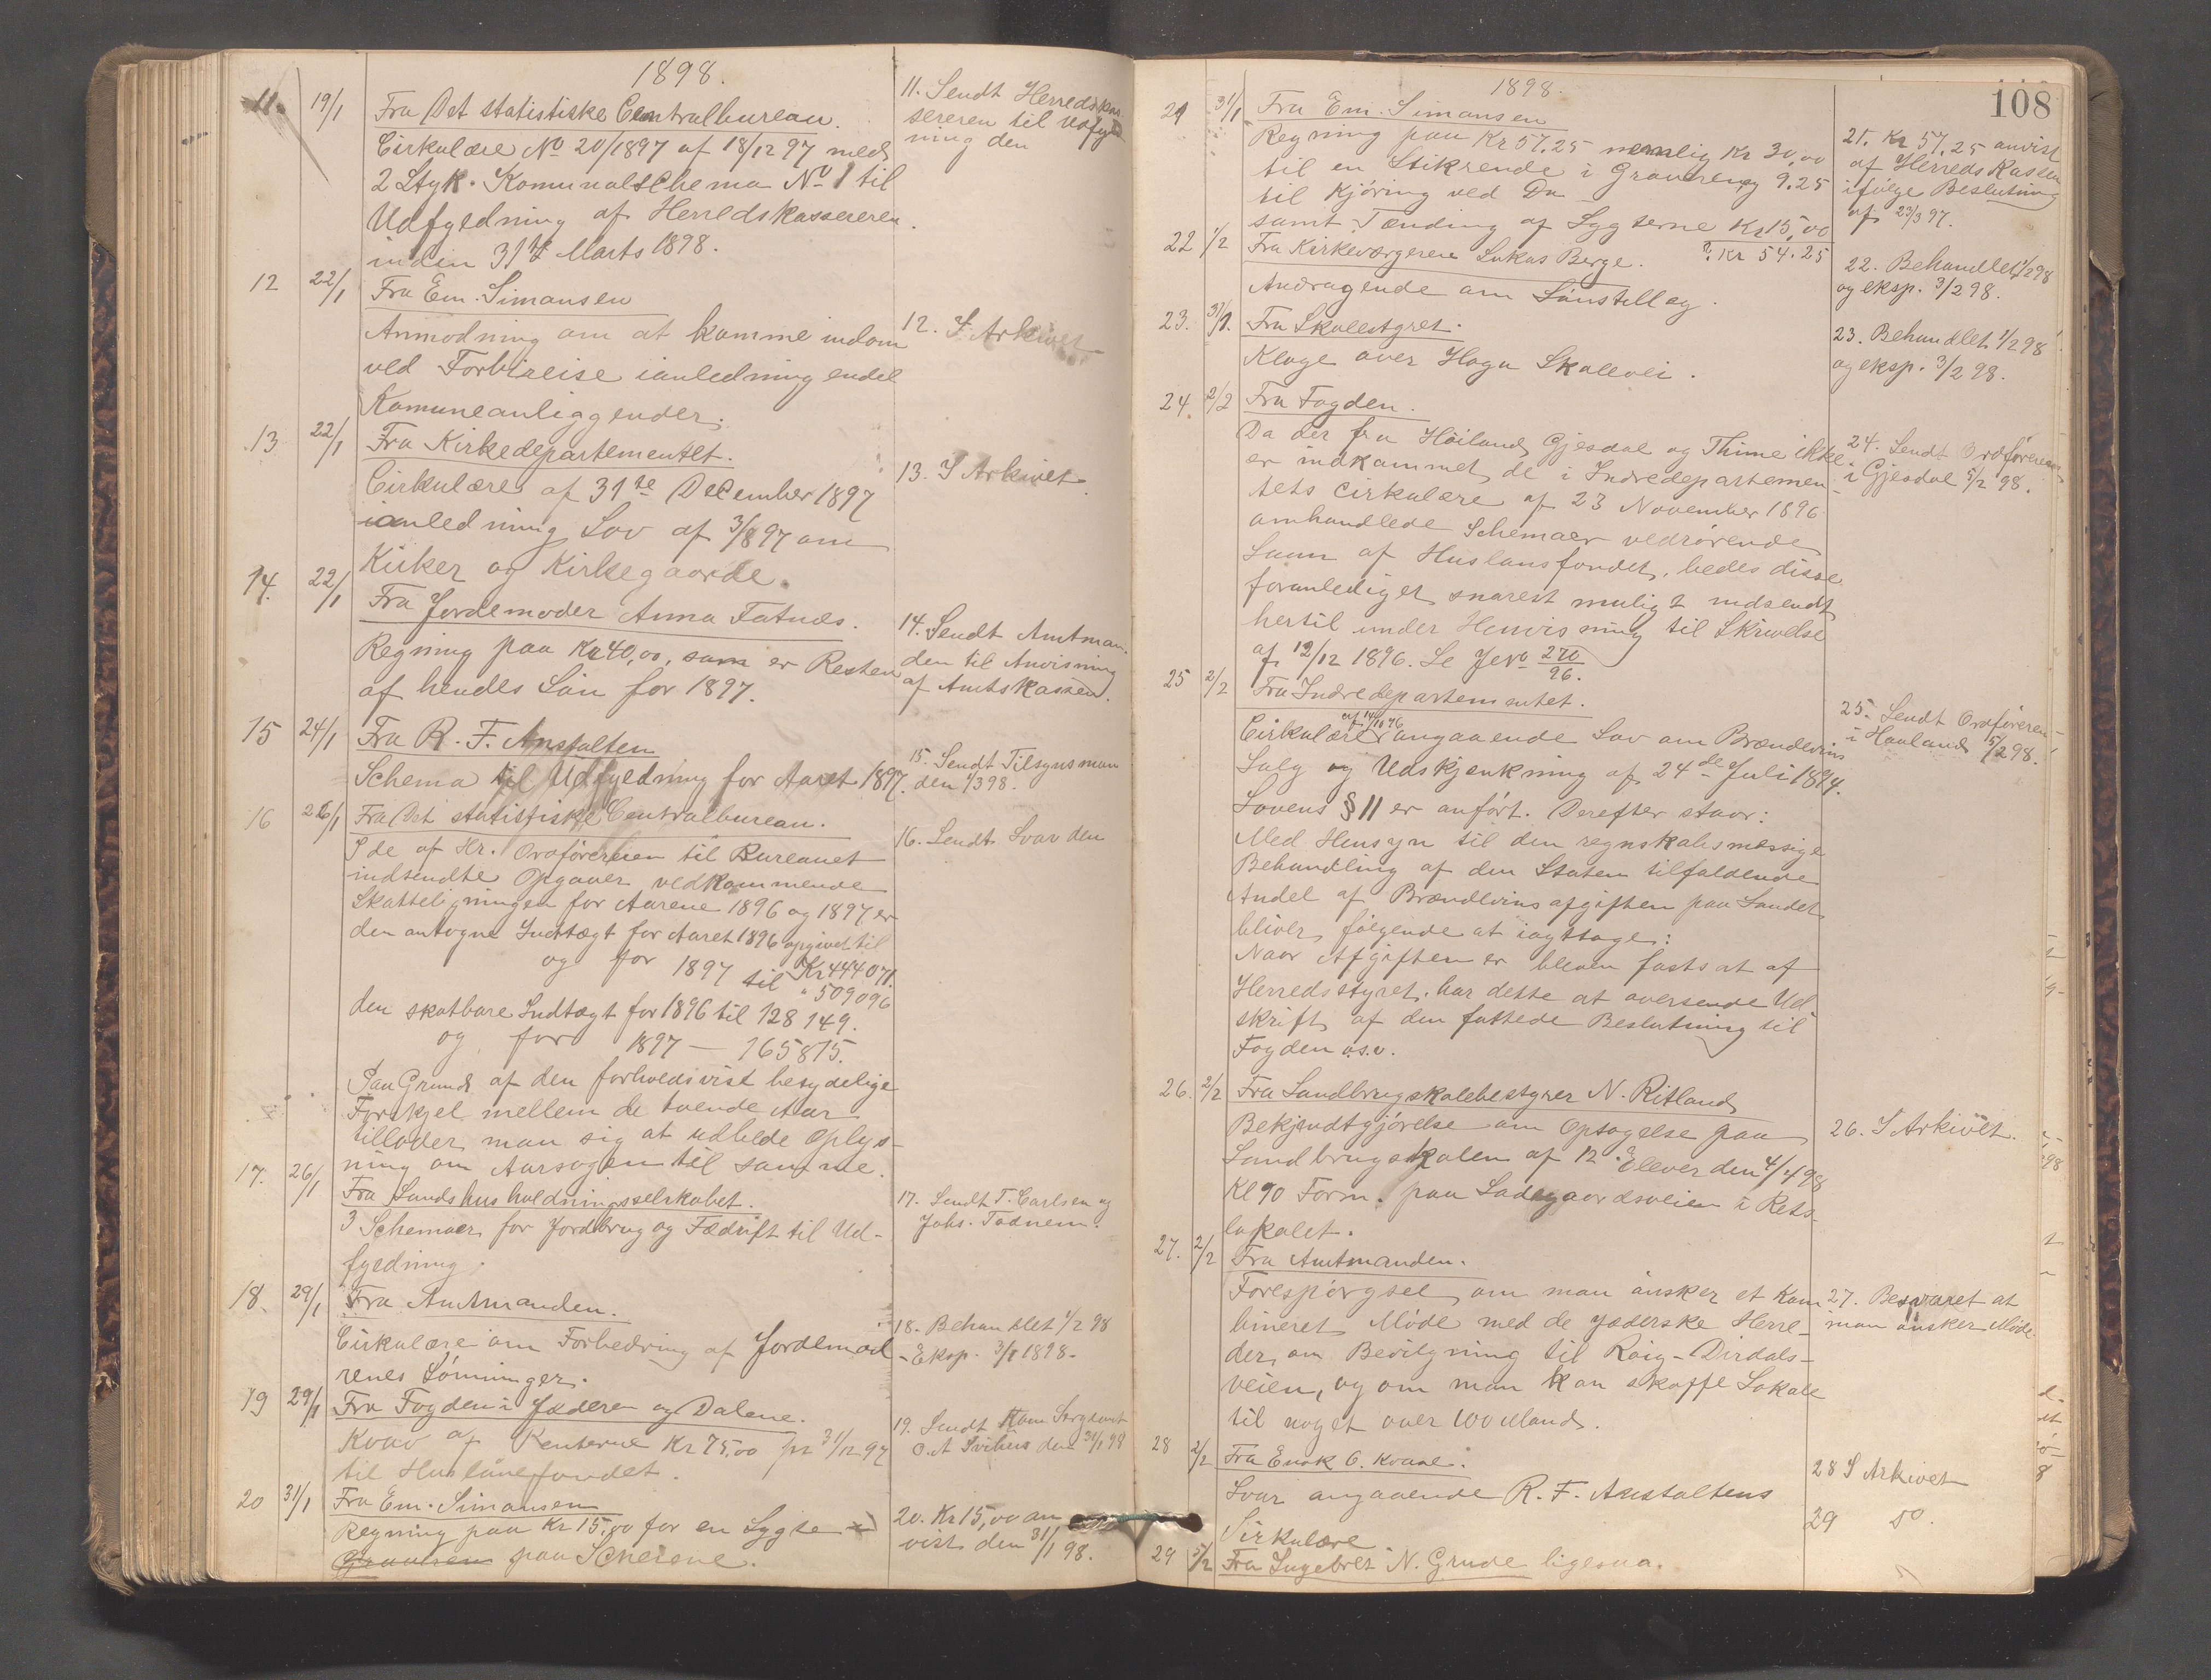 1898.
11. 19/1 Fra Det statistiske Centralbureau.
Cirkulære No 20/1897 af 18/12 97 med
2 Styk. Komunalschema No 1 til
Udfyldning af Herredskassereren
inden 31te Marts 1898.
11. Sendt Herredskas
sereren til Udfyld
ning den
12 22/1 Fra Em. Simonsen
Anmodning om at komme indom
ved Forbireise ianledning endel
Komuneanliggender.
12. I Arkivet
13 22/1 Fra Kirkedepartementet.
Cirkulære af 31te December 1897
ianledning Lov af 3/8 97 om
Kirker og Kirkegaarde.
13. I Arkivet.
14. 22/1 Fra Jordemoder Anna Tatnes.
Regning paa Kr 40,00, som er Resten
af hendes Løn for 1897.
14. Sendt Amtman
den til Anvisning
af Amtskassen.
15 24/1 Fra R. F. Anstalten
Schema til Udfyldning for Aaret 1897.
15. Sendt Tilsynsman
den 1/3 98.
16 26/1 Fra Det statistiske Centralbureau.
I de af Hr. Ordføreren til Bureauet
indsendte Opgaver vedkommende
Skatteligningen for Aarene 1896 og 1897 er
den antagne Indtægt for Aaret 1896 opgivet til
Kr 444071.
og for 1897 til " 509096
den skatbare Indtægt for 1896 til 128149.
og for 1897 — 165815.
Paa Grund af den forholdsvist betydelige
Forskjel mellem de tvende Aar
tillader man sig at udbede Oplys-
ning om Aarsagen til samme.
16. Sendt Svar den
17. 26/1 Fra Landshusholdningsselskabet.
3 Schemaer for Jordbrug og Fædrift til Ud-
fyldning.
17. Sendt T. Carlsen og
Johs. Todnem.
18. 29/1 Fra Amtmanden.
Cirkulære om Forbedring af Jordemød
renes Lønninger.
18. Behandlet 1/2 98
- Eksp. 3/2 1898-
19 29/1 Fra Fogden i Jæderen og Dalene.
Krav af Renterne Kr 75,00 pr 31/12 97
til Huslånefondet.
19. Sendt Kom Sergeant
O. A Svihus den 31/1 98
20 31/1 Fra Em. Simonsen
Regning paa Kr 15,00 for en Lygte i
Gravaren paa Scheiene.
20. Kr 15,00 an
vist den 31/1 98.
108
1898.
21 31/1 Fra Em. Simonsen
Regning paa Kr 57,25 nemlig Kr 30,00
til en Stikrende i Gravaren, 9.25
til Kjøring ved Do
samt Tænding af Lygterne Kr 15,00
? Kr 54.25
21. Kr 57,25 anvist
af Herreds Kassen
ifølge Beslutning
af 23/3 97.
22 1/2 Fra Kirkeværgeren Lukas Berge.
Andragende om Lønstillæg.
22. Behandlet 1/2 98
og eksp. 3/2 98.
23. 31/1. Fra Skolestyret.
Klage over Hogn Skolevei.
23. Behandlet 1/2 98
og eksp. 3/2 98.
24. 2/2 Fra Fogden.
Da der fra Høiland, Gjesdal og Thime ikke
er indkommet de i Indredepartemen-
tets Cirkulære af 23 November 1896
omhandlede Schemaer vedrørende
Laan af Huslånsfondet, bedes disse
foranlediget snarest muligt indsendt
hertil under Henvisning til Skrivelse
af 12/12 1896. Se Jevo 270/96.
24. Sendt Ordføreren
i Gjesdal 5/2 98.
25 2/2 Fra Indredepartementet.
Cirkulære af 14/10 96 angaaende Lov om Brændevins
Salg og Udskjenkning af 24de Juli 1894.
Lovens § 11 er anført. Derefter staar:
Med Hensyn til den regnskabsmessige
Behandling af den Staten tilfaldende
Andel af Brændevinsafgiften paa Landet
bliver følgende at iagttage:
Naar Afgiften er bleven fastsat af
Herredsstyret, har dette at oversende Ud-
skrift af den fattede Beslutning til
Fogden o.s.v.
25. Sendt Ordføreren
i Haaland 5/2 98.
26. 2/2 Fra Landbrugskolebestyrer N. Ritland
Bekjendtgjørelse om Optagelse paa
Landbrugskolen af 12 Elever den 4/4 98
Kl 90 Form. paa Ladegaardsveien i Rets-
lokalet.
26. I Arkivet.
27. 2/2 Fra Amtmanden.
Forespørgsel om man ønsker et Kom
bineret Møde med de jæderske Herre-
der om Bevilgning til Røig-Dirdals-
veien, og om man kan skaffe Lokale
til noget over 100 Mand.
27. Besvaret at
man ønsker Møde.
28 2/2 Fra Enok C. Kvaal.
Svar angaaende R. F. Anstaltens
Sirkulære.
28 I Arkivet
29 5/2 Fra Ingebret N. Grude ligesaa.
29 do.